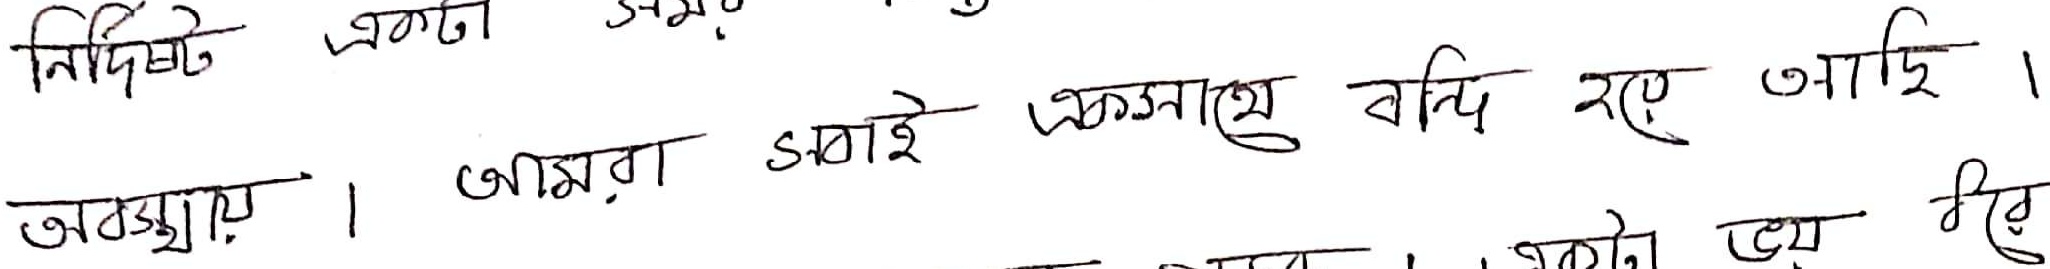 নির্দিষ্ট একটা সময়
অবস্থায় । আমরা সবাই একসাথে বন্দি হয়ে আছি ।
একটা ভয়